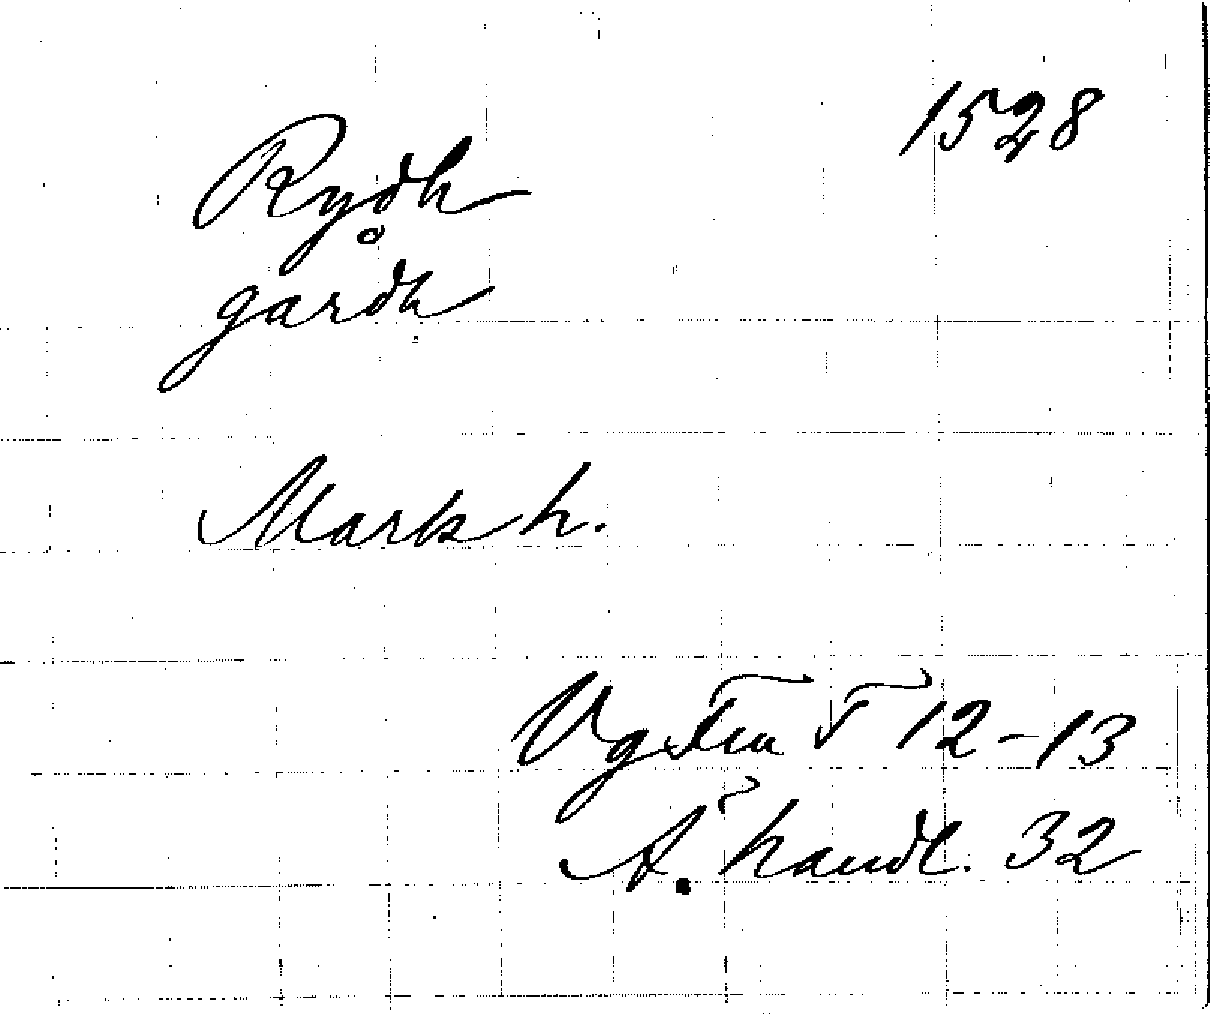 1528
Rydh
gårdh
Mark h.
Vg Fru F 12-13
A. handl. 32